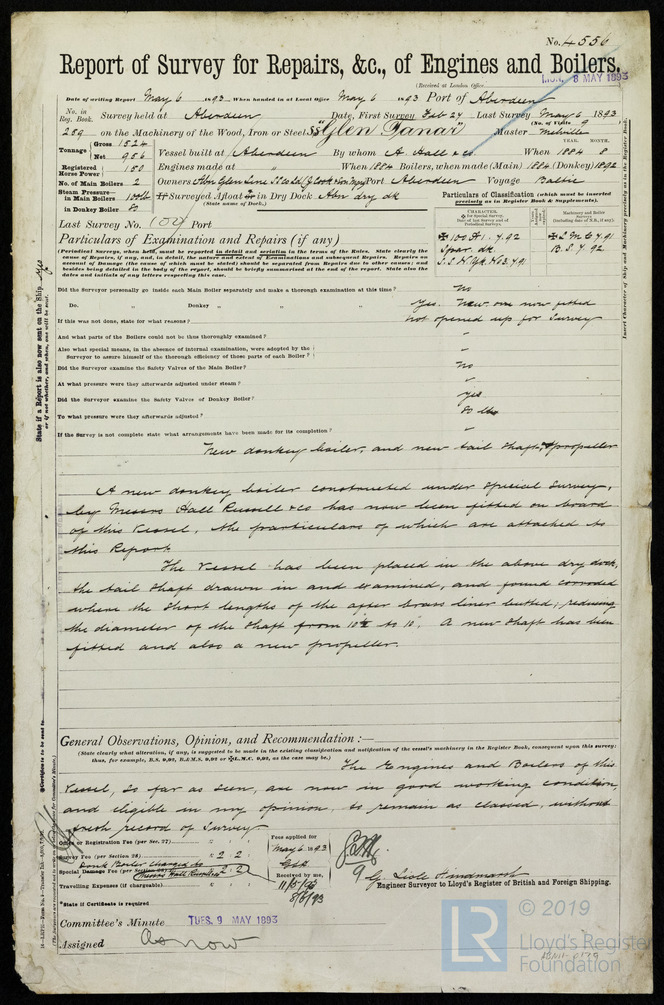 No. 4556
Report of Survey for Repairs, &c., of Engines and Boilers.
(Received at London Office MON. 8 MAY 1893
Date of writing Report May 6 1893 When handed in at Local Office May 6 1893 Port of Aberdeen
No. in Reg. Book. Survey held at Aberdeen Date, First Survey Feb 24 Last Survey May 6 1893
(No. of Visits 9
289 on the Machinery of the Wood, Iron or Steel SS "Glen Tanar" Master Melville
YEAR. MONTH.
Tonnage Gross 1524 Net 986 Vessel built at Aberdeen By whom A. Hall & Co When 1884 8
Registered Horse Power 150 Engines made at " When 1884 Boilers, when made (Main) 1884 (Donkey) 1892
No. of Main Boilers 2 Owners Abn Glen Line SS Co Ld Port Aberdeen Voyage Baltic
Steam Pressure in Main Boilers 100 lb If Surveyed Afloat or in Dry Dock Abn dry dk
(State name of Dock.)
in Donkey Boiler 80
Particulars of Classification (which must be inserted precisely as in Register Book & Supplement).
Last Survey No. 109 Port
CHARACTER.
Machinery and Boiler Surveys
(including date of N.B., if any).
Particulars of Examination and Repairs (if any)
(Periodical Surveys, when held, must be reported in detail and seriatim in the terms of the Rules. State clearly the
cause of Repairs, if any, and, in detail, the nature and extent of Examinations and subsequent Repairs. Repairs on
account of Damage (the cause of which must be stated) should be separated from Repairs due to other causes; and
besides being detailed in the body of the report, should be briefly summarised at the end of the report. State also the
dates and initials of any letters respecting this case.
✠ 100 A1. 7.92
Spar. dk.
✠ L M C 4.91
B. S. 7. 92
Did the Surveyor personally go inside each Main Boiler separately and make a thorough examination at this time? No
Do. " Donkey " " " Yes. New one now fitted
If this was not done, state for what reasons? not opened up for Survey
And what parts of the Boilers could not be thoroughly examined? "
Also what special means, in the absence of internal examination, were adopted by the
Surveyor to assure himself of the thorough efficiency of those parts of each Boiler? "
Did the Surveyor examine the Safety Valves of the Main Boiler? No
At what pressure were they afterwards adjusted under steam? "
Did the Surveyor examine the Safety Valves of Donkey Boiler? yes
To what pressure were they afterwards adjusted? 80 lbs
If the Survey is not complete state what arrangements have been made for its completion? "
New donkey boiler, and new tail shaft, & propeller
A new donkey boiler constructed under Special Survey,
by Messrs Hall Russell & Co has now been fitted on board
of this Vessel, the particulars of which are attached to
this Report.
The Vessel has been placed in the above dry dock,
the tail shaft drawn in and examined, and found corroded
where the short lengths of the after brass liner butted, reducing
the diameter of the shaft from 10 3/4 to 10". A new shaft has been
fitted and also a new propeller.
General Observations, Opinion, and Recommendation:—
(State clearly what alteration, if any, is suggested to be made in the existing classification and notification of the vessel's machinery in the Register Book, consequent upon this survey:
thus, for example, B.S. 9,92, B.& M.S. 9,92 or ✠L.M.C. 9,92, as the case may be.)
The Engines and Boilers of this
Vessel, so far as seen, are now in good working condition,
and eligible in my opinion, to remain as classed, without
fresh record of Survey
Office or Registration Fee (per Sec. 27)
Survey Fee (per Section 28) 2 2
Donk Boiler Charged to
Special Damage Fee (per Section 28) 2 2
Messrs Hall Russell & Co
Travelling Expenses (if chargeable)
*State if Certificate is required
Fees applied for
May 6 1893
Received by me,
G. Lisle Hindmarsh
Engineer Surveyor to Lloyd's Register of British and Foreign Shipping.
Committee's Minute TUES. 9 MAY 1893
Assigned As now
State if a Report is also now sent on the Ship. yes
or if not, whether, and when, one will be sent.
Insert Character of Ship and Machinery precisely as in the Register Book.
© 2019
LR
Lloyd's Register
Foundation